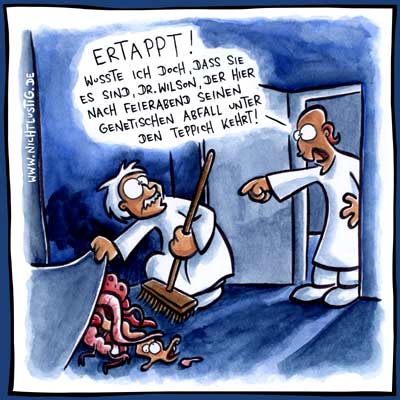 ERTAPPT!
WUSSTE ICH DOCH, DASS SIE
ES SIND, DR. WILSON, DER HIER
NACH FEIERABEND SEINEN
GENETISCHEN ABFALL UNTER
DEN TEPPICH KEHRT!
WWW.NICHTLUSTIG.DE